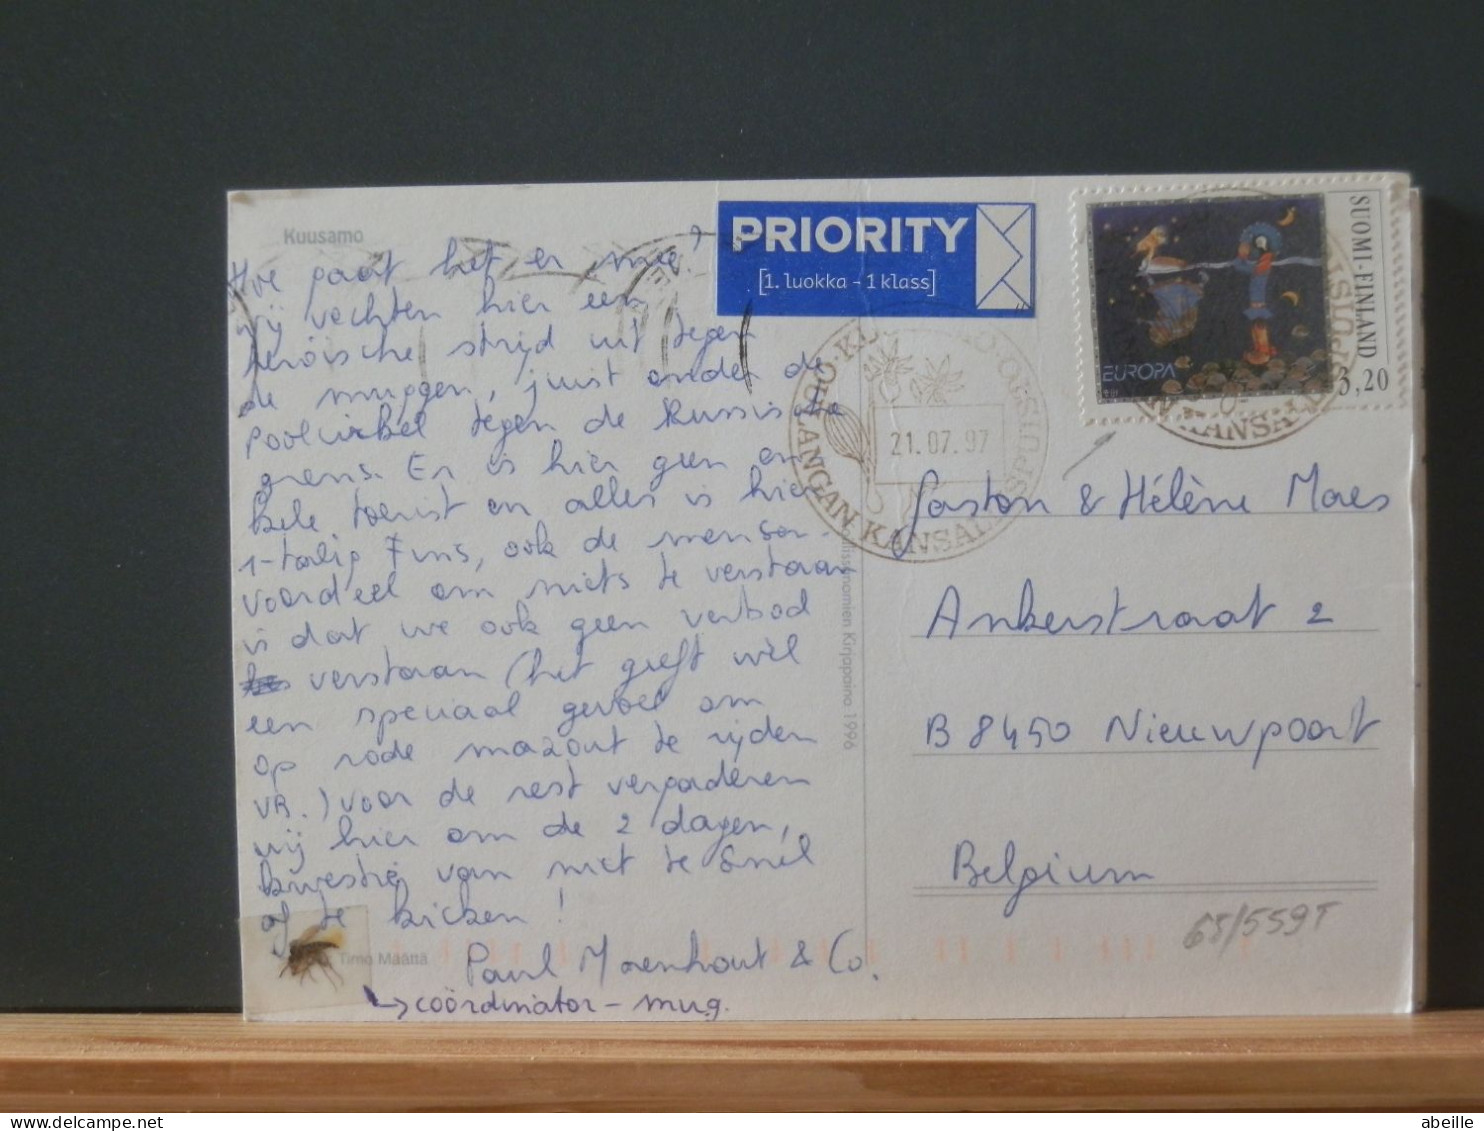 Kuusamo
Hoe gaat het er mee?
wij vechten hier een
heroïsche strijd uit tegen
de muggen, juist onder de
poolcirkel tegen de Russische
grens. Er is hier geen en
kele toerist en alles is hier
1-talig Fins, ook de mensen.
voordeel om niets te verstaan
is dat we ook geen verbod
verstaan (het geeft wel
een speciaal gevoel om
op rode mazout te rijden
VR.) voor de rest vergaderen
wij hier om de 2 dagen,
kwestie van niet te snel
af te kicken!
Paul Maenhout & Co.
→ coördinator - mug.
Timo Määttä
PRIORITY
[1. luokka - 1 klass]
OULANGAN KANSALLISPUISTO
21.07.97
SUOMI-FINLAND
EUROPA
3,20
Gaston & Hélène Maes
Ankerstraat 2
B 8450 Nieuwpoort
Belgium
65/559T
Kirjapaino 1996
abeille